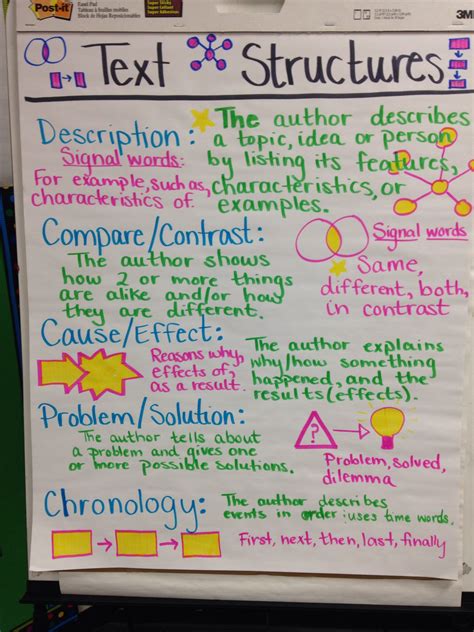 Post-it
Easel Pad
Tableau à feuilles mobiles
Block de Hojas Reposicionables
Super Sticky
3M
Text Structures
Description:
The author describes
a topic, idea or person
by listing its features,
characteristics, or
examples.
Signal words:
For example, such as,
characteristics of
Compare/Contrast:
The author shows
how 2 or more things
are alike and/or how
they are different.
Signal words
Same,
different, both,
in contrast
Cause/Effect:
Reasons why,
effects of,
as a result.
The author explains
why/how something
happened, and the
results (effects).
Problem/Solution:
The author tells about
a problem and gives one
or more possible solutions.
?
Problem, solved,
dilemma
Chronology:
The author describes
events in order: uses time words.
First, next, then, last, finally